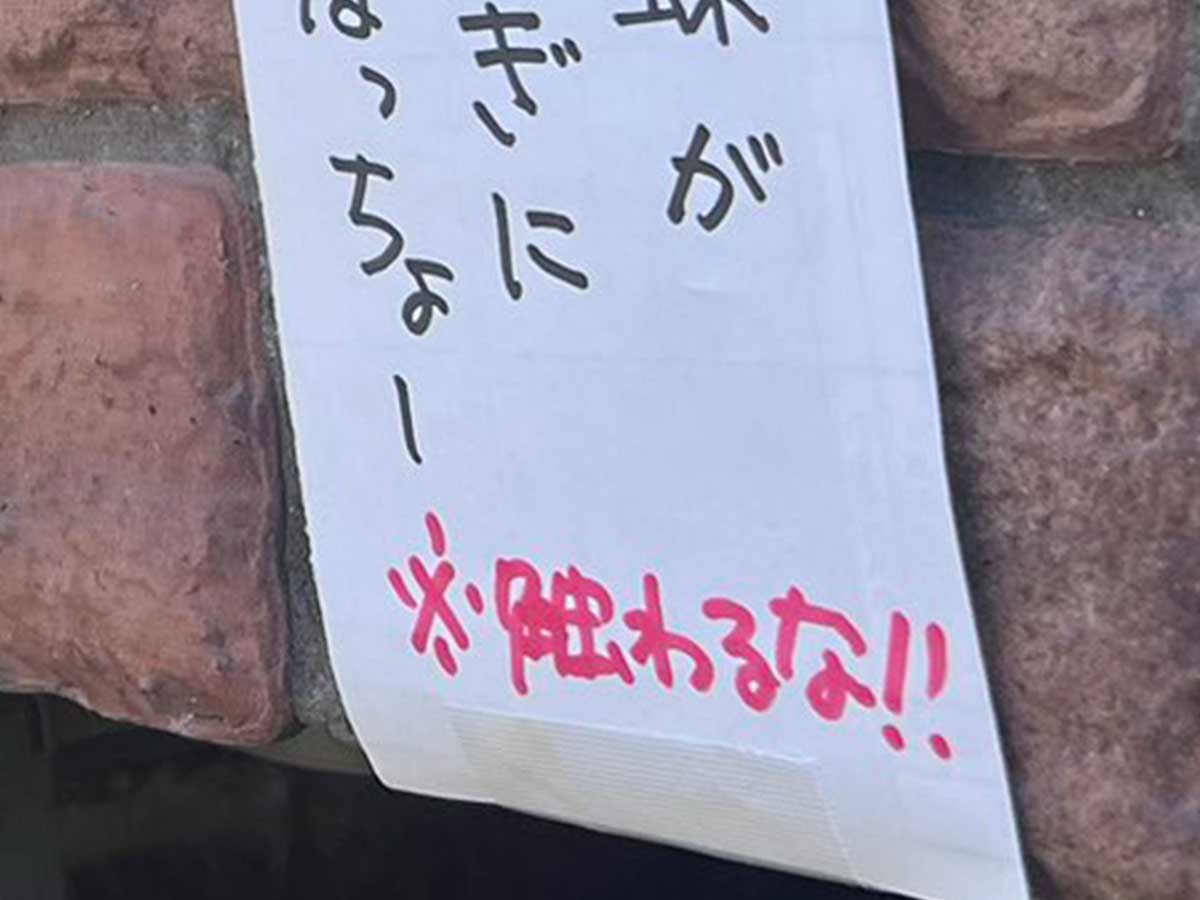 が
ぎに
なっちょー
※触わるな!!